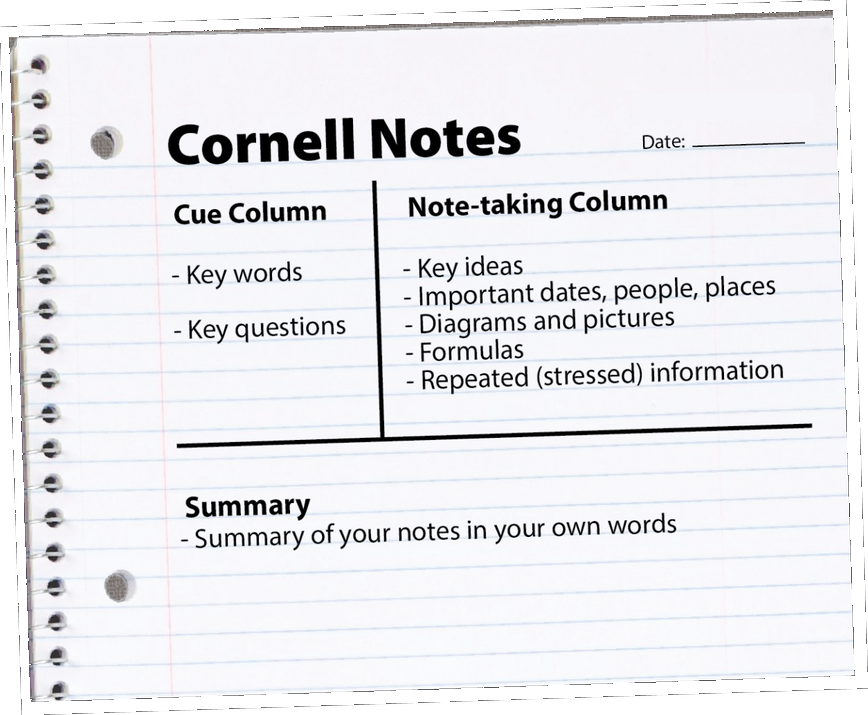 Cornell Notes
Date:
Cue Column
- Key words
- Key questions
Note-taking Column
- Key ideas
- Important dates, people, places
- Diagrams and pictures
- Formulas
- Repeated (stressed) information
Summary
- Summary of your notes in your own words